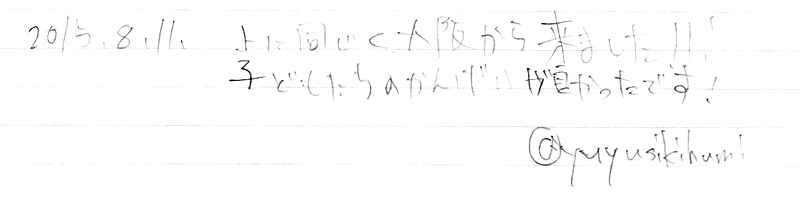 2015.8.11. 上に同じく大阪から来ました!!!
子どもたちのかんげいが良かったです!
@yuyusikihumi